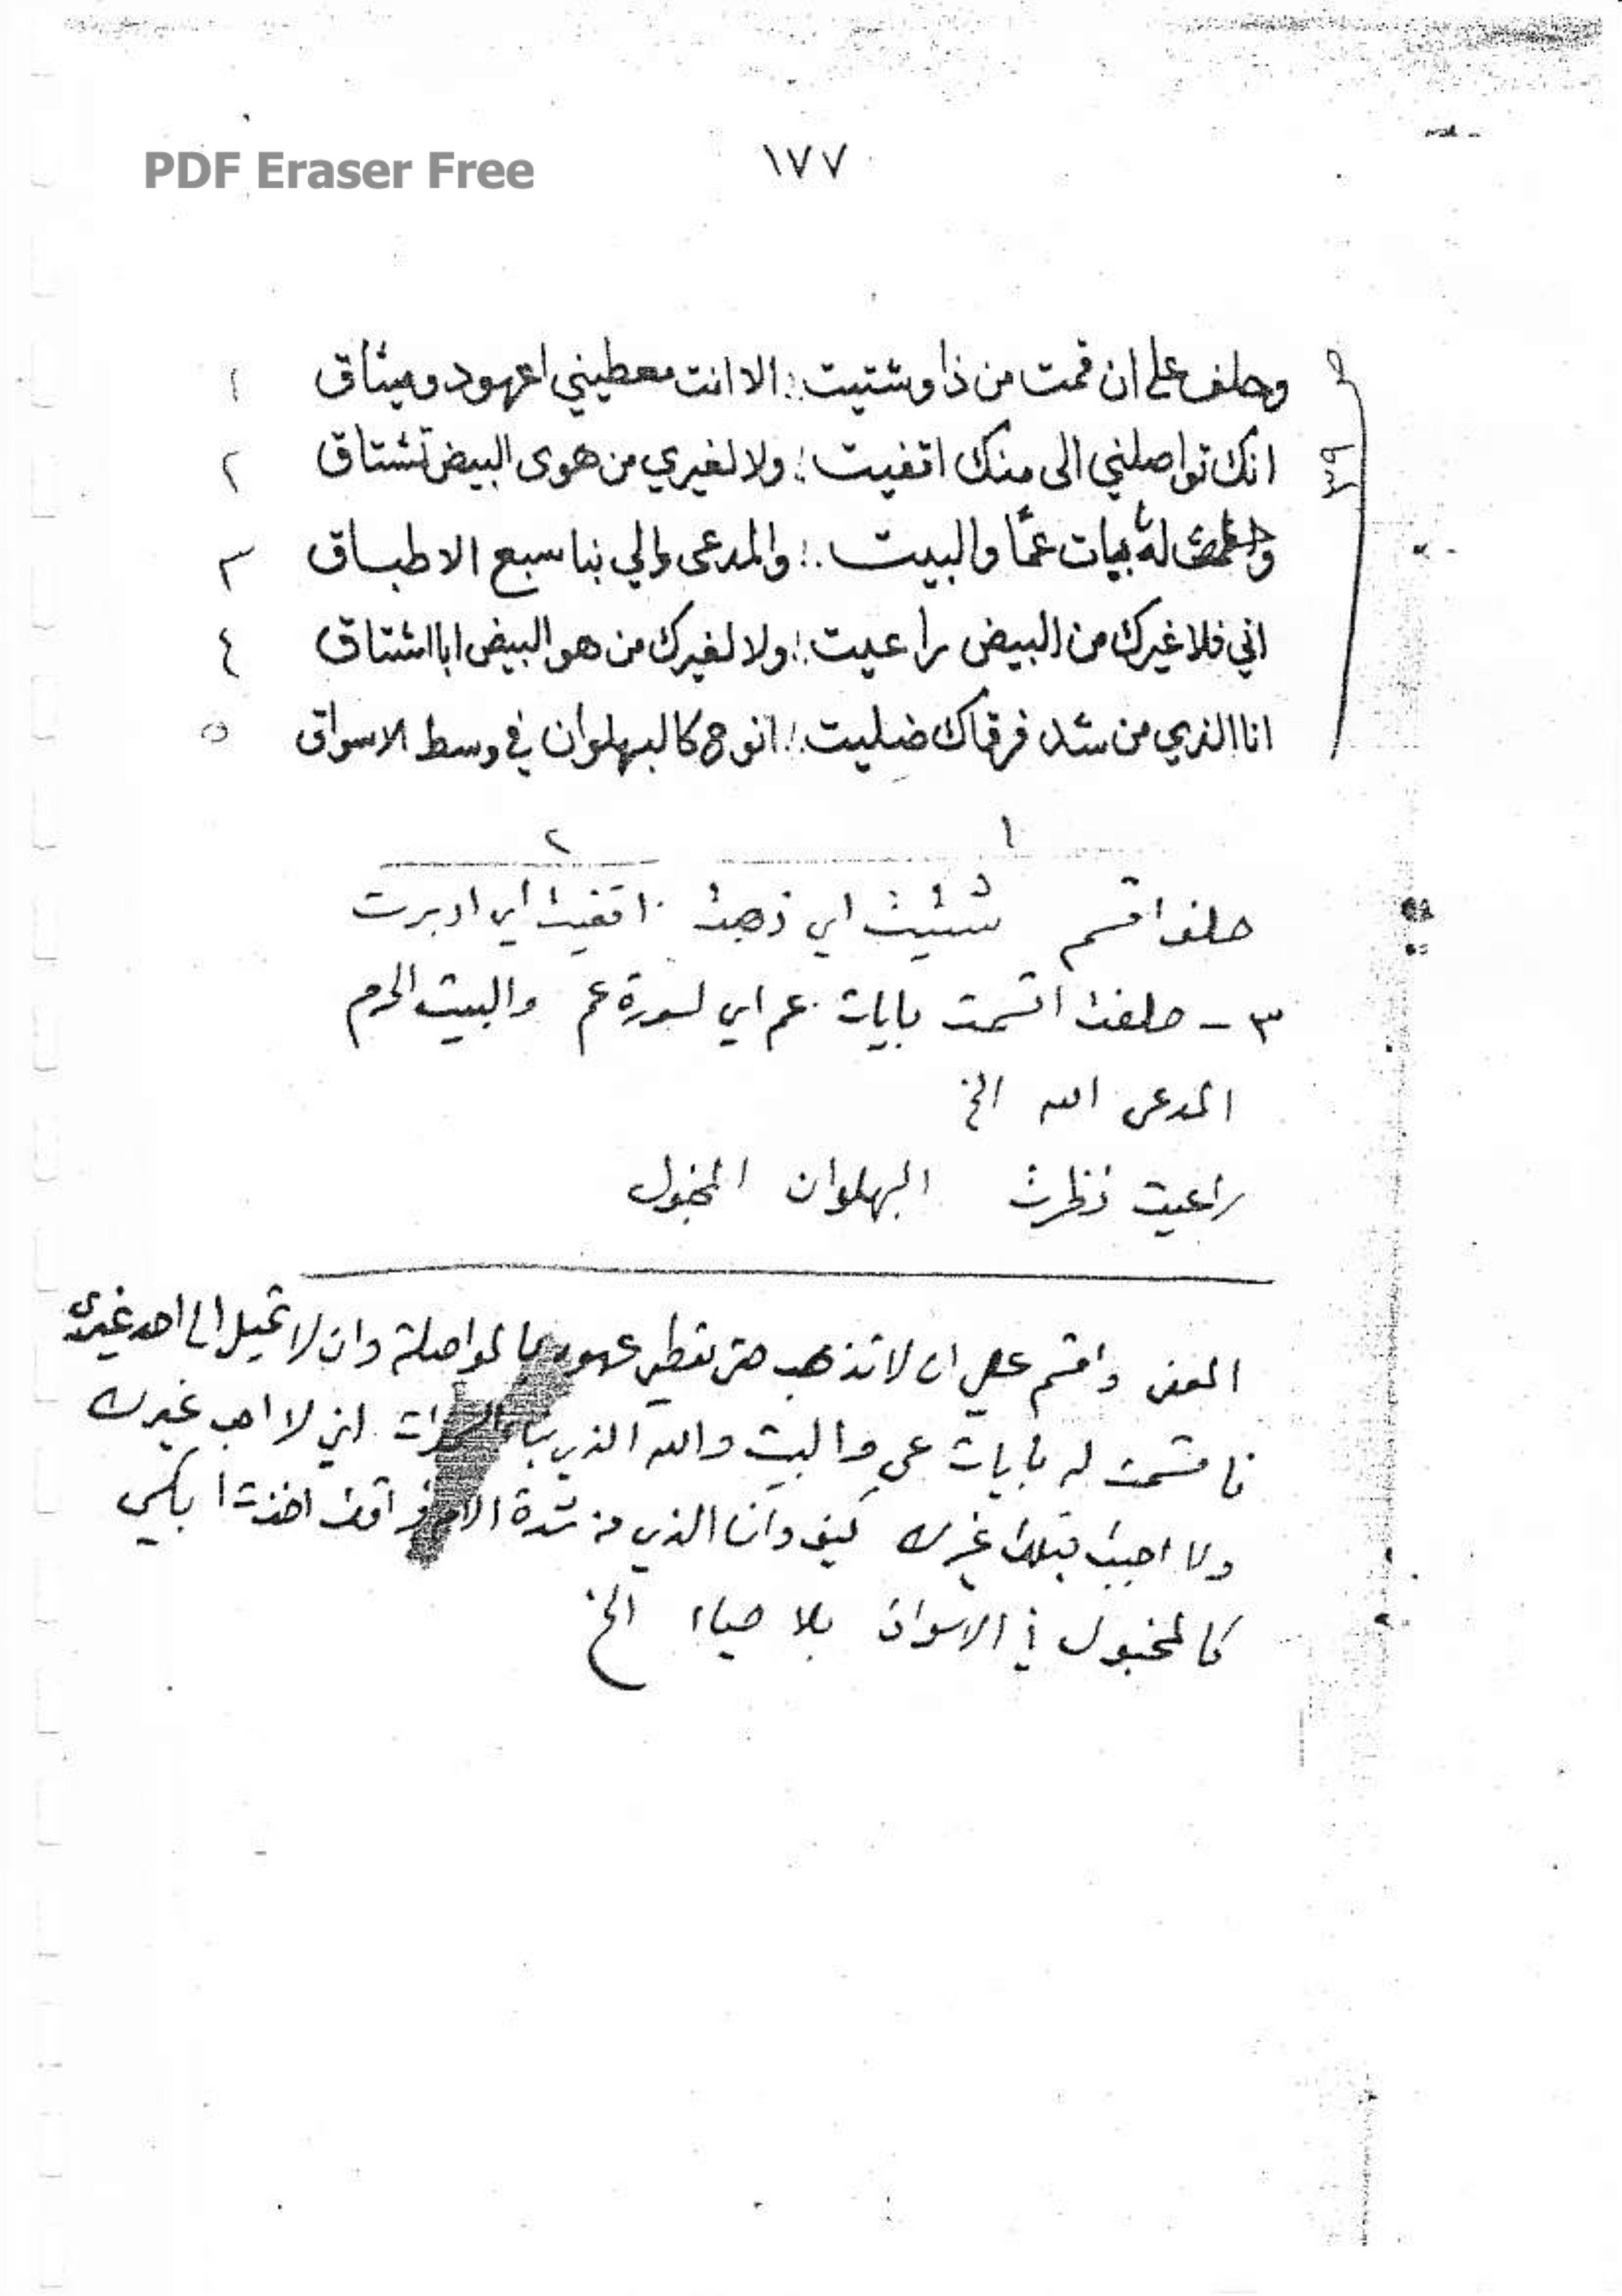 PDF Eraser Free
١٧٧
وحلف علي ان قمت من ذا وشتيت : الا انت معطيني اعهود وميثاق ١
انك تواصلني الى منك اقفيت : ولا لغيري من هوى البيض تشتاق ٢
له بيات عمّا والبيت : والمدعى والي بنا سبع الاطباق ٣
اني فلا غيرك من البيض راعيت : ولا لغيرك من هو البيض ابا اشتاق ٤
انا الذي من شد فرقاك ضليت : انوح كالبهلوان في وسط الاسواق ٥
١ ٢
حلف اقسم شتيت اي ذهبت اقفيت اي ادبرت
٣ - حلفت اقسمت بايات عم اي لسورة عم والبيت الحرم
المدعى الله الخ
راعيت نظرت البهلوان المخبول
المعنى واقسم علي ان لا تذهب حتى تعطيني عهود بالمواصلة وان لا تميل الى احد غيري
فاقسمت له بايات عم والبيت والله الذي اني لا احب غيرك
ولا احببت قبلك غيرك كيف وانا الذي من شدة فراقك اخذت ابكي
كالمخبول في الاسواق بلا حياء الخ